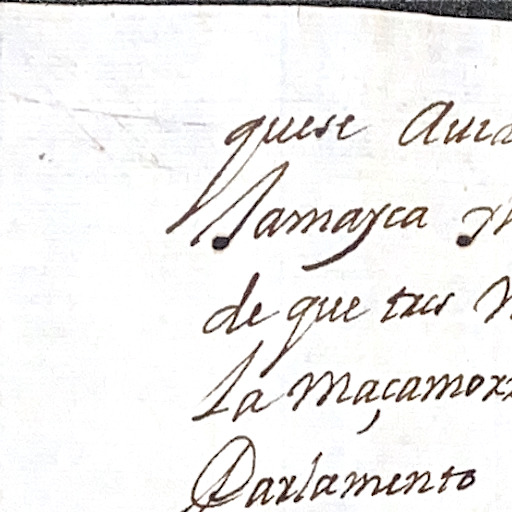 quese Aui
Jamayca y
de que tres
La Maçamor
Parlamento